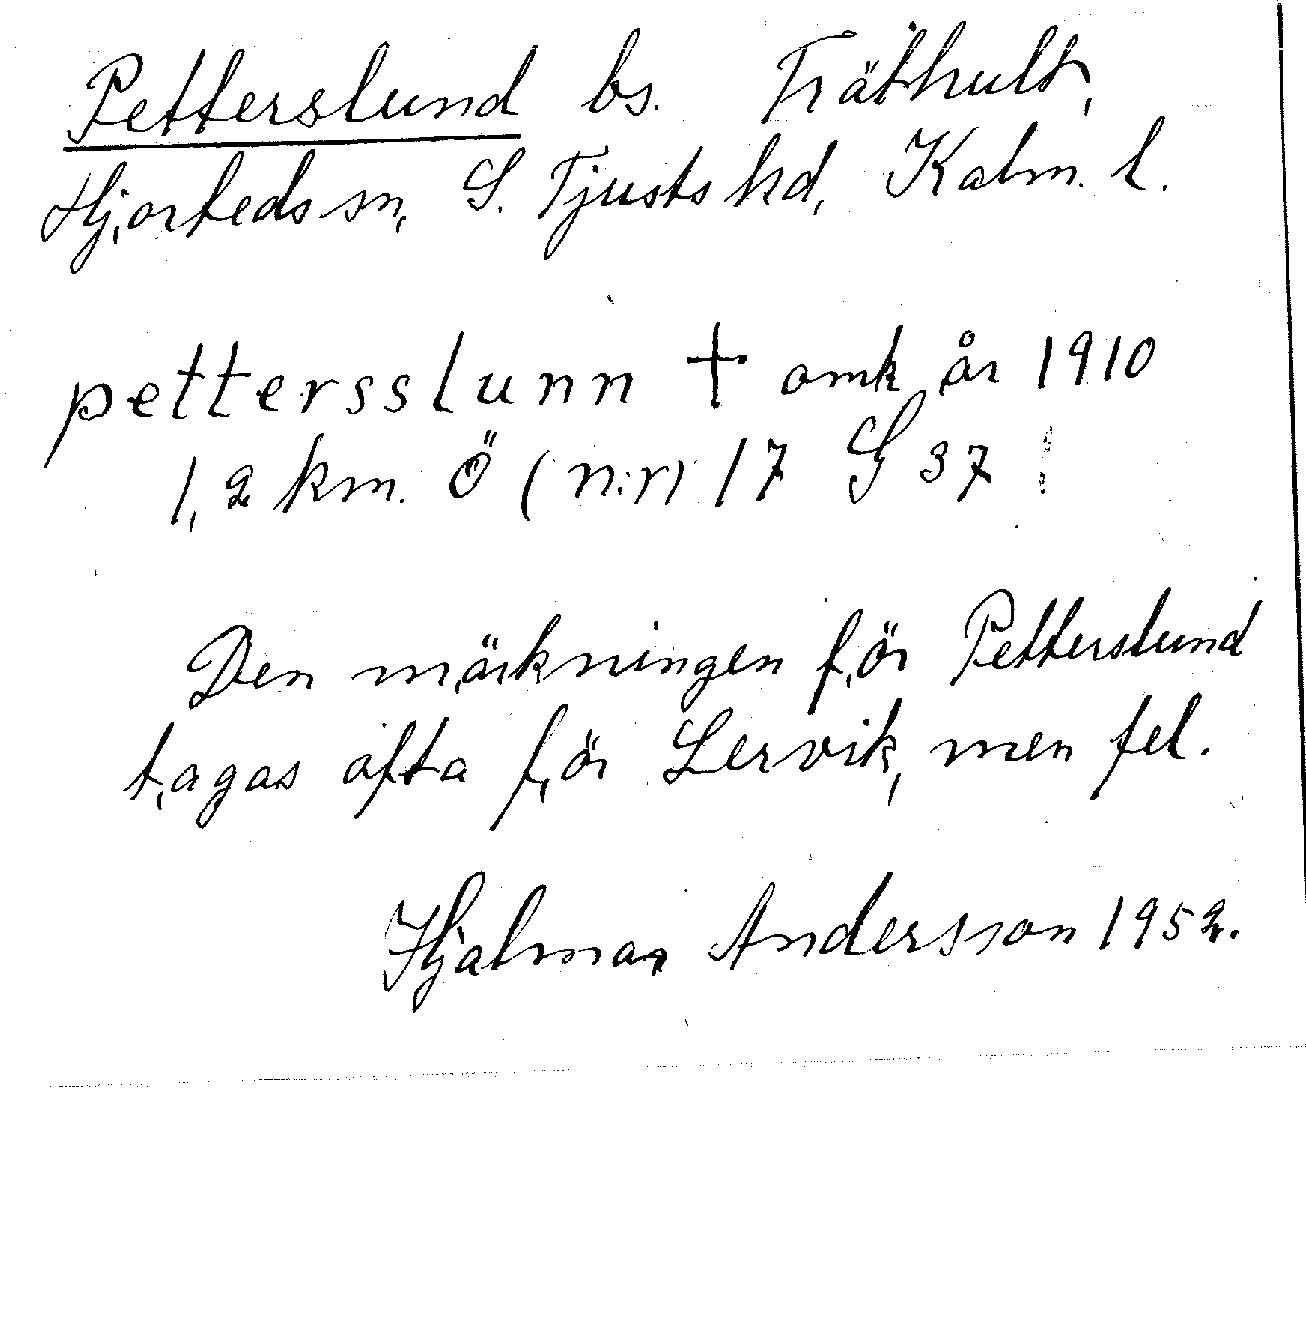 Petterslund bs. Träthult,
Hjorteds sn, S. Tjusts hd, Kalm. l.
pettersslunn † omk år 1910
1,2 km. Ö (n:r) 17 S 37
Den märkningen för Petterslund
tagas ofta för Lervik, men fel.
Hjalmar Andersson 1952.